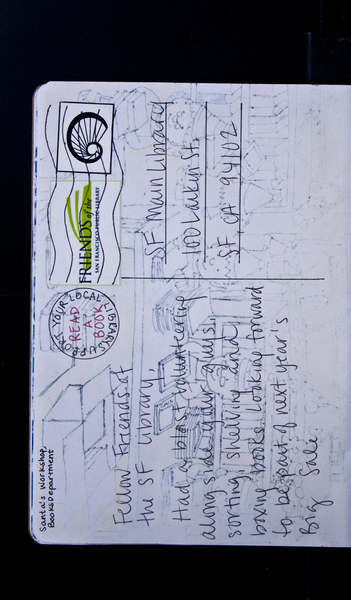 Santa's Workshop,
Books Department
SUPPORT YOUR LOCAL LIBRARIES
READ
A
BOOK
FRIENDS of the
SAN FRANCISCO PUBLIC LIBRARY
Fellow Friends of
the SF Library,
Had a blast volunteering
along side your guys,
sorting, shelving and
boxing books. Looking forward
to be part of next year's
Big Sale
SF Main Library
100 Larkin St.
SF, CA 94102